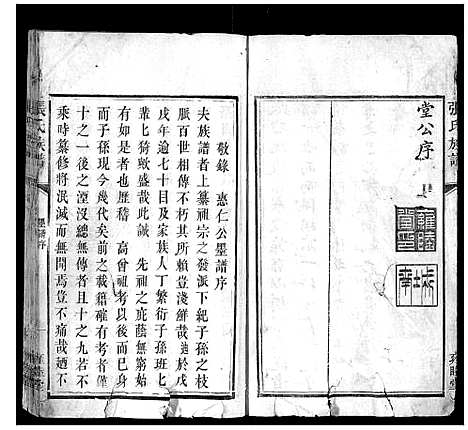 張氏族譜
堂公序
雍睦堂
敬錄
惠仁公墨譜序
夫族譜者上纂祖宗之發派下紀子孫之枝
脈百世相傳不朽其所賴豈淺鮮哉迪於戊
戌年逾七十目及家族人丁繁衍子孫班七
輩七猗歟盛哉此誠 先祖之庇蔭無窮始
有如是者也歷稽 高曾祖考以及於 身
而子孫現今幾代矣前之載籍確有考者僅
十之一後之湮沒總無傳者且十之九若不
乘時纂修將泯滅而無聞焉豈不痛哉廼不
張氏族譜
墨譜序
雍睦堂